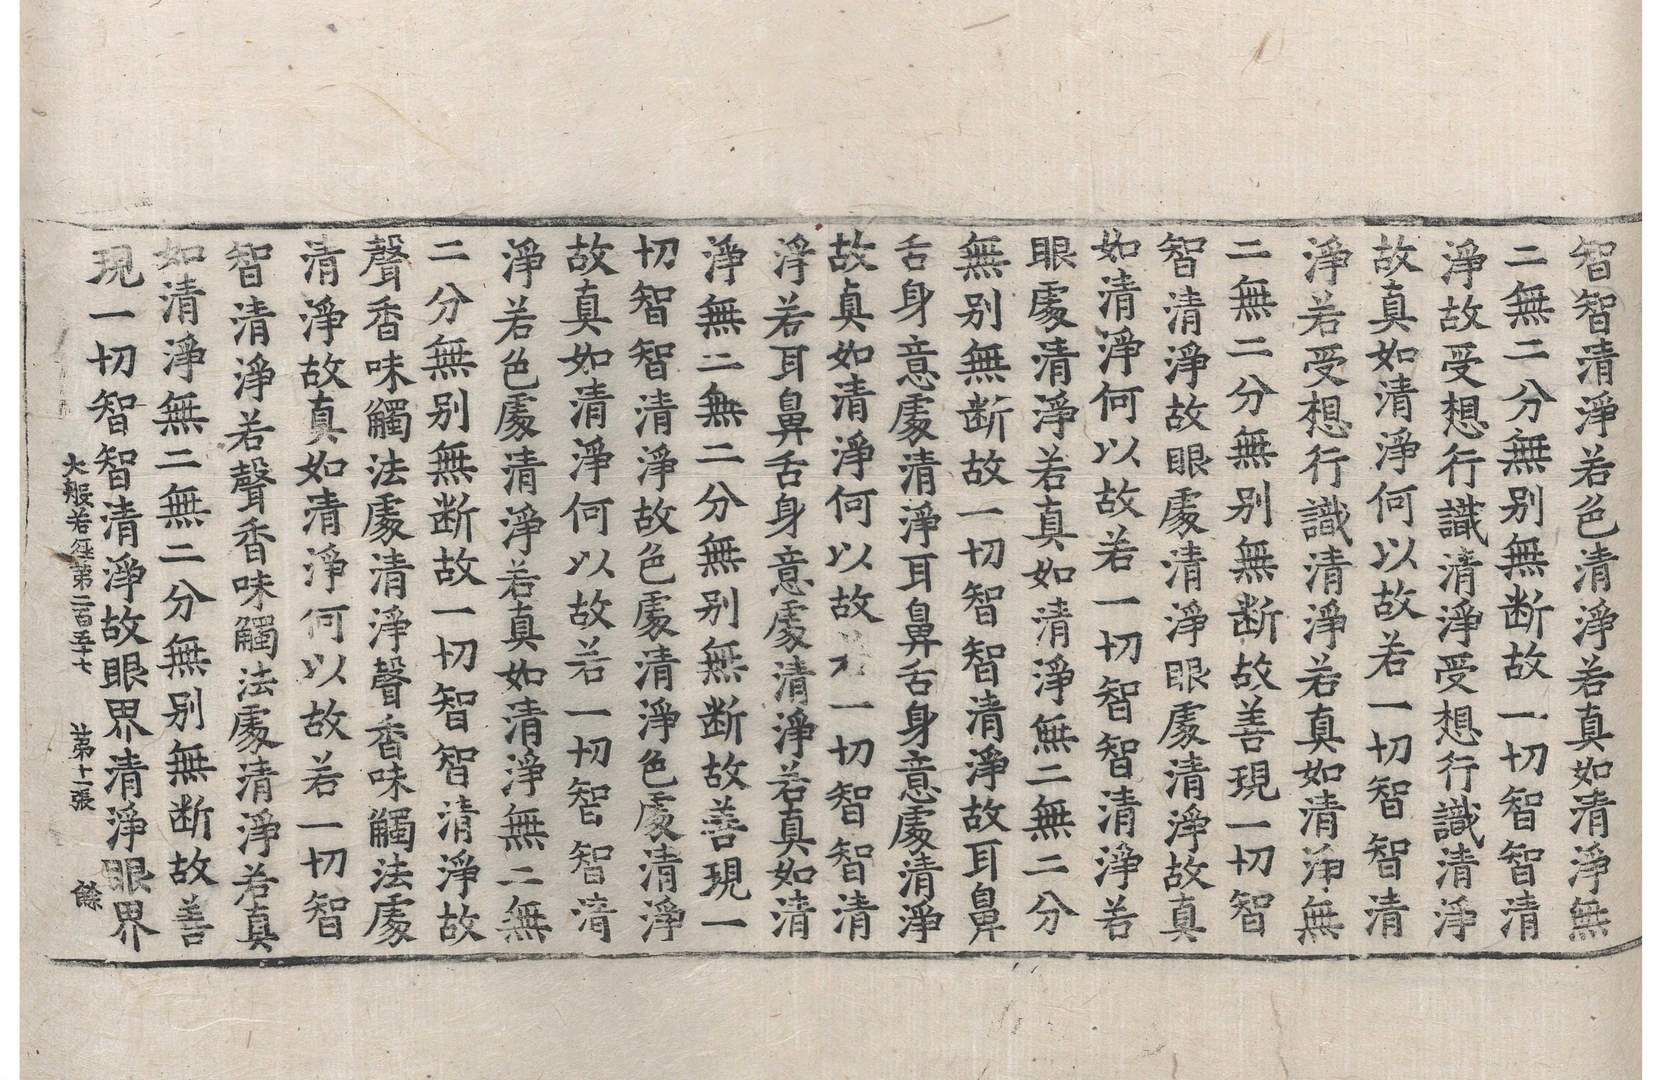 智智清淨若色清淨若真如清淨無
二無二分無别無断故一切智智清
淨故受想行識清淨受想行識清淨
故真如清淨何以故若一切智智清
淨若受想行識清淨若真如清淨無
二無二分無别無断故善現一切智
智清淨故眼處清淨眼處清淨故真
如清淨何以故若一切智智清淨若
眼處清淨若真如清淨無二無二分
無别無断故一切智智清淨故耳鼻
舌身意處清淨耳鼻舌身意處清淨
故真如清淨何以故一切智智清
淨若耳鼻舌身意處清淨若真如清
淨無二無二分無别無断故善現一
切智智清淨故色處清淨色處清淨
故真如清淨何以故若一切智智清
淨若色處清淨若真如清淨無二無
二分無别無断故一切智智清淨故
聲香味觸法處清淨聲香味觸法處
清淨故真如清淨何以故若一切智
智清淨若聲香味觸法處清淨若真
如清淨無二無二分無别無断故善
現一切智智清淨故眼界清淨眼界
大般若經第二百五十七 第十二張 餘